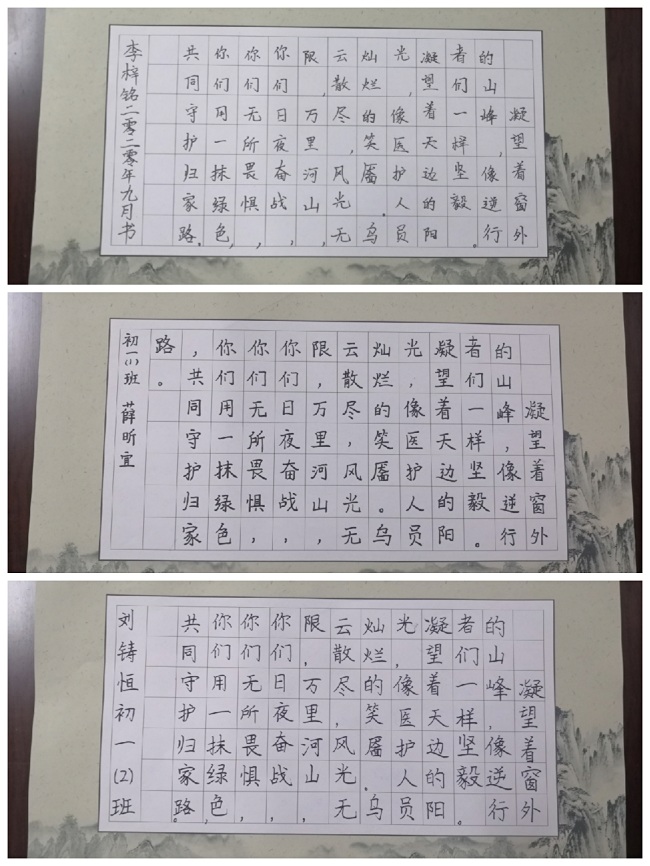 凝望着窗外
的山峰，像逆行
者们一样坚毅。
凝望着天边的阳
光，像医护人员
灿烂的笑靥。乌
云散尽，风光无
限，万里河山，
你们日夜奋战，
你们无所畏惧，
你们用一抹绿色，
共同守护归家路。
李梓铭二零二零年九月书
凝望着窗外
的山峰，像逆行
者们一样坚毅。
凝望着天边的阳
光，像医护人员
灿烂的笑靥。乌
云散尽，风光无
限，万里河山，
你们日夜奋战，
你们无所畏惧，
你们用一抹绿色
，共同守护归家
路。
初一(1)班 薛昕宜
凝望着窗外
的山峰，像逆行
者们一样坚毅。
凝望着天边的阳
光，像医护人员
灿烂的笑靥。乌
云散尽，风光无
限，万里河山，
你们日夜奋战，
你们无所畏惧，
你们用一抹绿色，
共同守护归家路。
刘铸恒初一(2)班